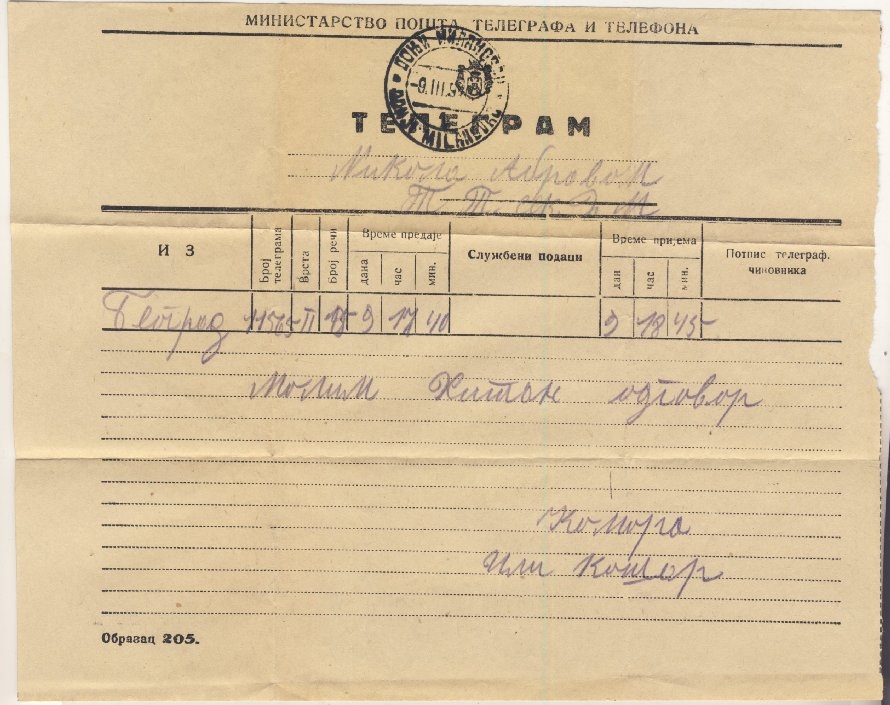 МИНИСТАРСТВО ПОШТА, ТЕЛЕГРАФА И ТЕЛЕФОНА
ДОЊИ МИЛАНОВАЦ
-9.III.
ТЕЛЕГРАМ
Никола
И З
Број телеграма
Врста
Број речи
Време предаје
дана
час
мин.
Службени подаци
Време пријема
дан
час
мин.
Потпис телеграф.
чиновника
Београд 11565 II 15 9 17 40 9 18 45
Молим Хитан одговор
Комора
или
Образац 205.